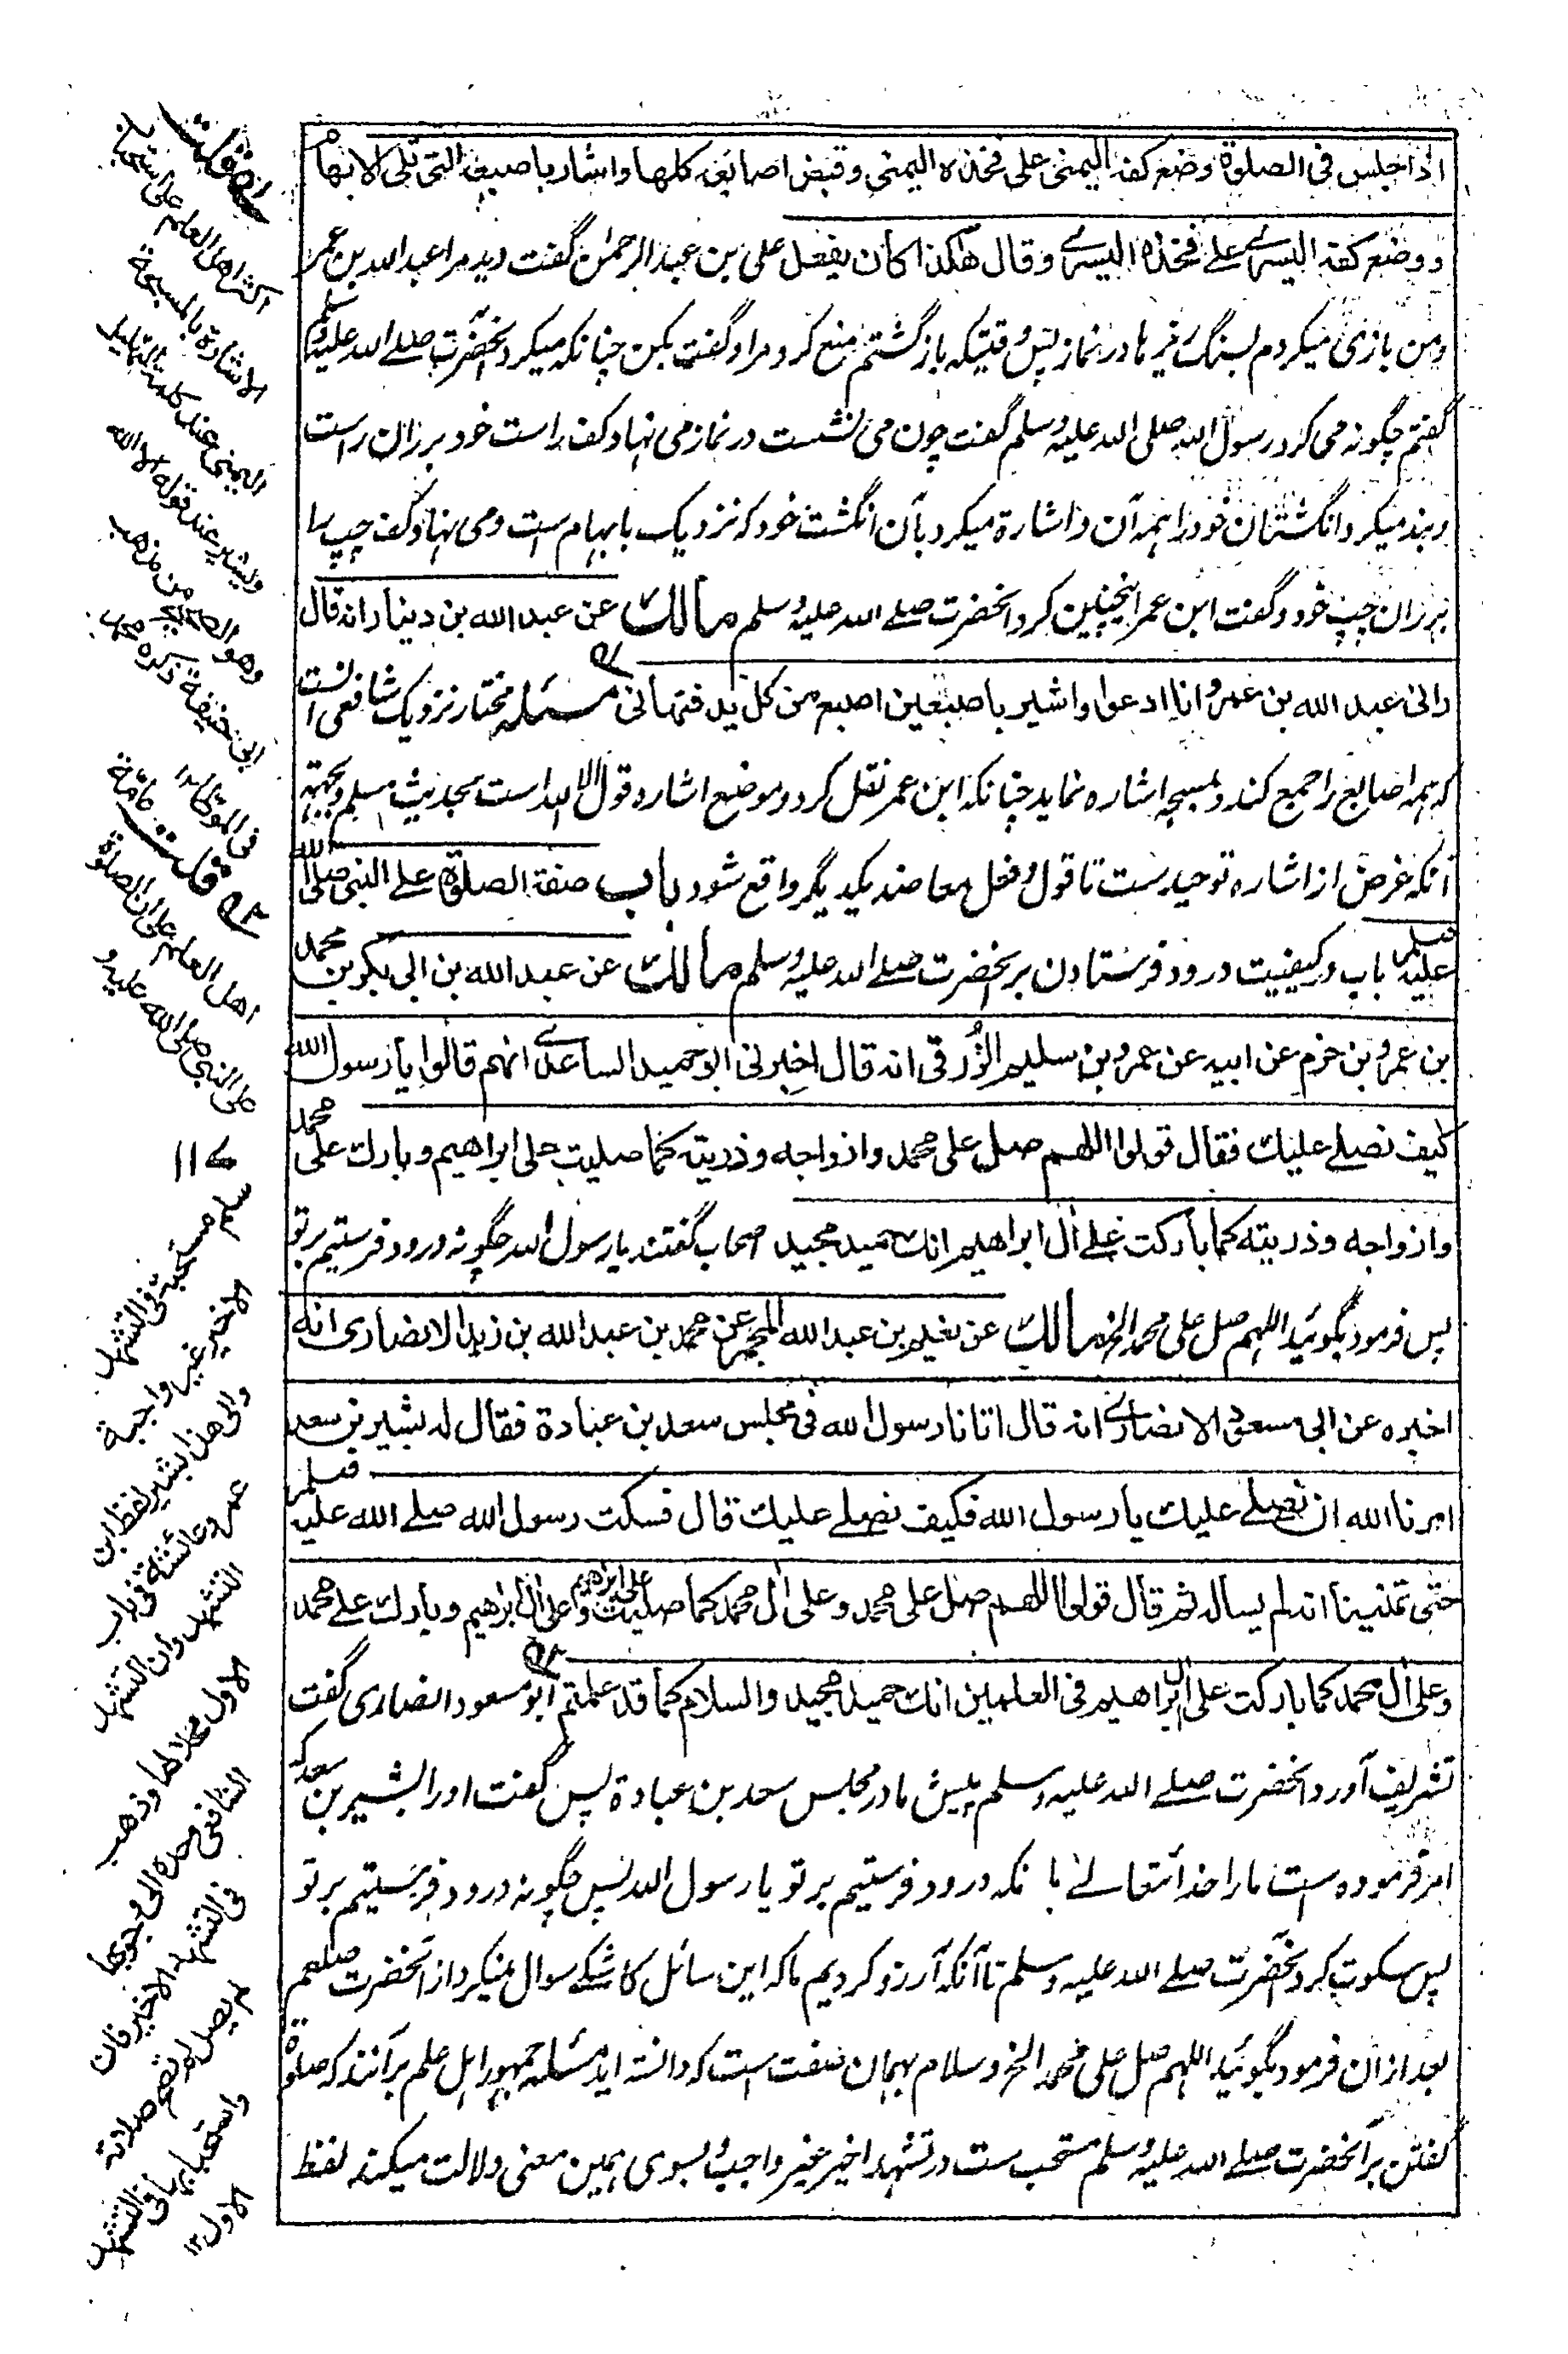 اذا جلس فی الصلوٰة وضع کفه الیمنی علی فخذه الیمنی وقبض اصابعه کلها واشار باصبعه التی تلی الابهام
ووضع کفه الیسرے علے فخذه الیسرے وقال هکذا کان یفعل علی بن عبد الرحمٰن گفت دید مرا عبد الله بن عمر
ومن بازی میکردم بسنگ ریزها در نماز پس وقتیکه بازگشتم منع کرد مرا وگفت بکن چنانکه میکرد آنحضرت صلے الله علیه وسلم
گفتم چگونه می کرد رسول الله صلی الله علیه وسلم گفت چون می نشست در نماز می نهاد کف راست خود بر ران راست
وبند میکرد انگشتان خود را همه آن واشارة میکرد بآن انگشت خود که نزدیک بابهام ست ومی نهاد کف چپ را
بر ران چپ خود وگفت ابن عمر اینچنین کرد آنحضرت صلے الله علیه وسلم مالك عن عبد الله بن دینار انه قال
رانی عبد الله بن عمر وانا ادعو واشیر باصبعین اصبع من کل ید فنهانی مسئله مختار نزدیک شافعی انست
که همه اصابع را جمع کند وبمسبحه اشاره نماید چنانکه ابن عمر نقل کرد وموضع اشاره قول الا الله است بحدیث مسلم وبجهة
آنکه غرض از اشاره توحید ست تا قول وفعل معاضد یکدیگر واقع شود باب صفة الصلوٰة علے النبی صلی الله
علیه وسلم باب در کیفیت درود فرستادن بر آنحضرت صلے الله علیه وسلم مالك عن عبد الله بن ابی بکر بن محمد
بن عمرو بن حزم عن ابیه عن عمرو بن سلیم الزُرقی انه قال اخبرنی ابو حمید الساعدی انهم قالوا یا رسول الله
کیف نصلے علیك فقال قولوا اللهم صل علی محمد وازواجه وذریته کما صلیت علی ابراهیم وبارك علی محمد
وازواجه وذریته کما بارکت علے اٰل ابراهیم انك حمید مجید اصحاب گفتند یا رسول الله چگونه درود فرستیم بر تو
پس فرمود بگوئید اللهم صل علی محمد الخ مالك عن نعیم بن عبد الله المجمر عن محمد بن عبد الله بن زید الانصاری انه
اخبره عن ابی مسعود الانصارے انه قال اتانا رسول الله فی مجلس سعد بن عبادة فقال له بشیر بن سعد
امرنا الله ان نصلے علیك یا رسول الله فکیف نصلے علیك قال فسکت رسول الله صلے الله علیه وسلم
حتی تمنینا انه لم یساله ثم قال قولوا اللهم صل علی محمد وعلی اٰل محمد کما صلیت علی ابراهیم وعلی اٰل ابراهیم وبارك علے محمد
وعلی اٰل محمد کما بارکت علی اٰل ابراهیم فی العلمین انك حمید مجید والسلام کما قد علمتم ابو مسعود انصاری گفت
تشریف آورد آنحضرت صلے الله علیه وسلم پیش ما در مجلس سعد بن عبادة پس گفت او را بشیر بن سعد که
امر فرموده ست ما را خدا تعالے بآنکه درود فرستیم بر تو یا رسول الله پس چگونه درود فرستیم بر تو
پس سکوت کرد آنحضرت صلے الله علیه وسلم تا آنکه آرزو کردیم ما که این سائل کاشکے سوال نمیکرد از آنحضرت صلعم
بعد ازان فرمود بگوئید اللهم صل علی محمد الخ وسلام بهمان صفت است که دانسته اید مسئله جمهور اهل علم بر آنند که صلوٰة
گفتن بر آنحضرت صلے الله علیه وسلم مستحب ست در تشهد اخیر غیر واجب وبسوی همین معنی دلالت میکند لفظ
قلت
اکثر اهل العلم علی استحباب
الاشارة بالمسبحة
الیمنی عند کلمة التهلیل
ویشیر عند قوله الا الله
وهو الصحیح من مذهب
ابی حنیفة ذکره محمد
فی الموطا
قلت عامة
اهل العلم علی ان الصلوٰة
علی النبی صلی الله علیه و
سلم مستحبة فی التشهد
الاخیر غیر واجبة
والی هذا یشیر لفظ ابن
عمر وعائشة فی باب
التشهد وان التشهد
الاول محلا لها وذهب
الشافعی وحده الی وجوبها
فی التشهد الاخیر فان
لم یصل لم تصح صلاته
واستحبابها فی التشهد
الاول ۱۲